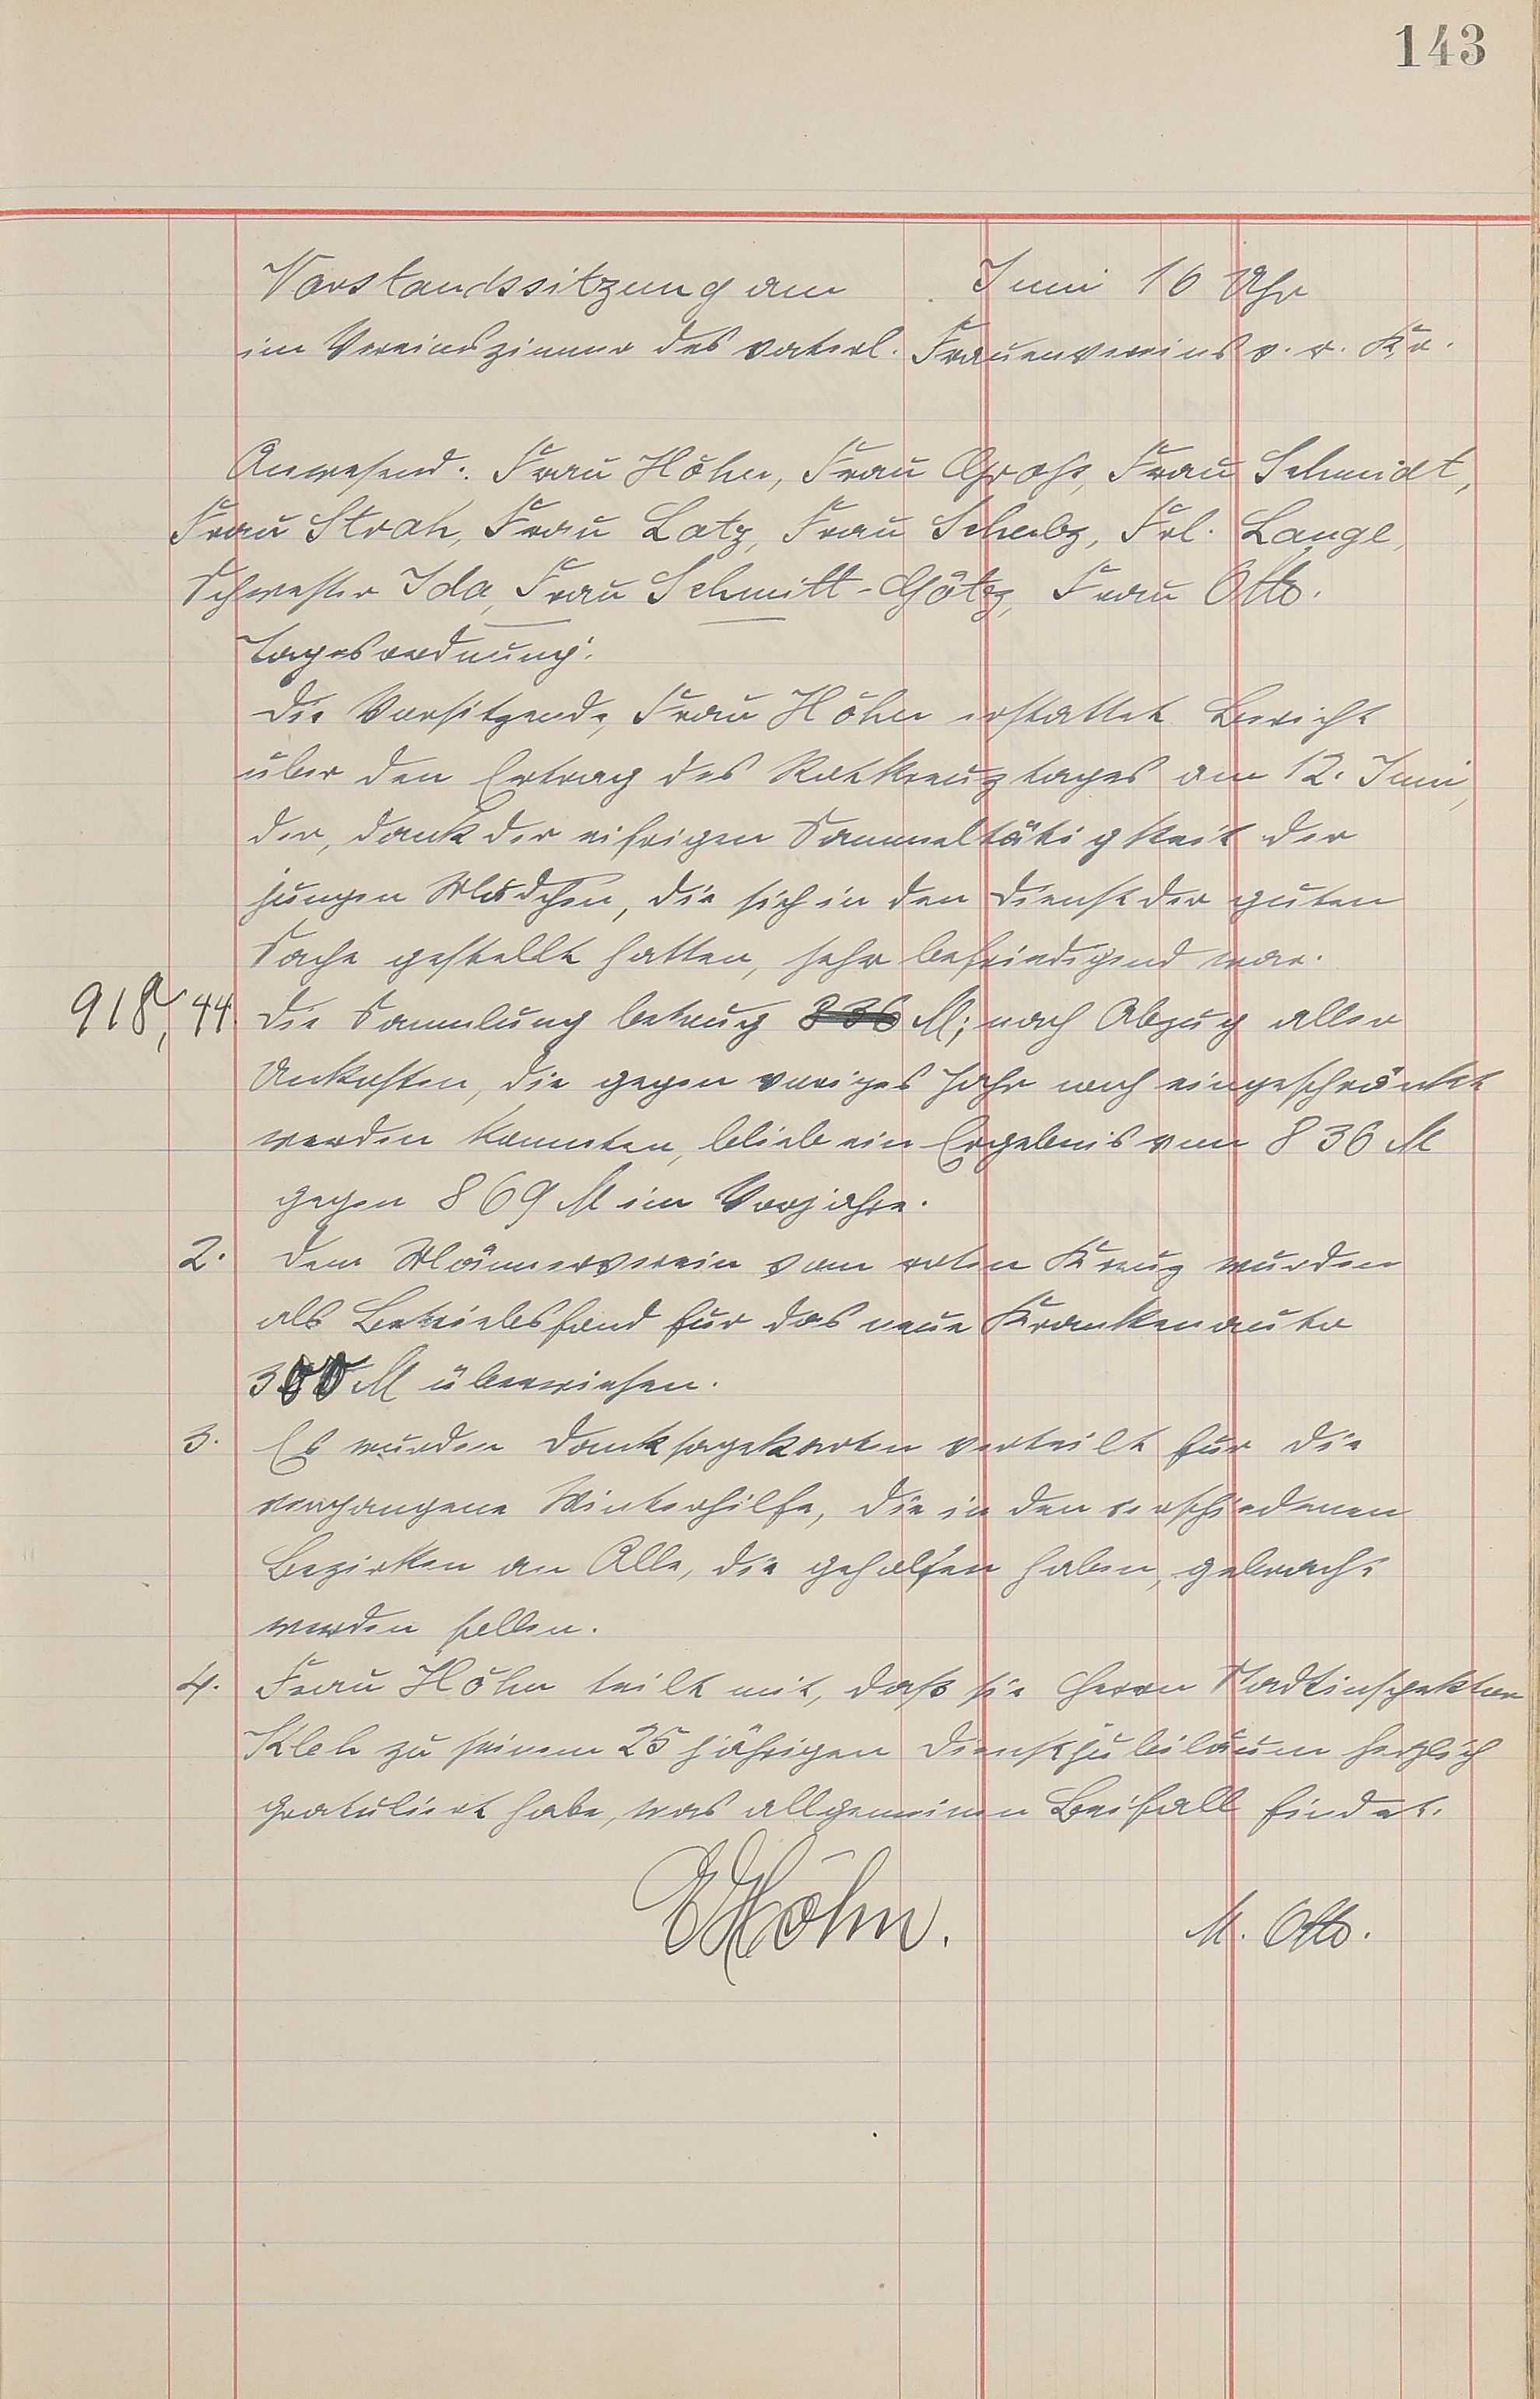 143
Vorstandssitzung am . Juni 16 Uhr
im Vereinszimmer des vaterl. Frauenvereins v. r. Kr.
Anwesend: Frau Höhn, Frau Groß, Frau Schmidt,
Frau Strak, Frau Latz, Frau Schulz, Frl. Lange,
Schwester Ida, Frau Schmitt-Götz, Frau Otto.
Tagesordnung:
Die Vorsitzende, Frau Höhn erstattet Bericht
über den Ertrag des Rotkreuztages am 12. Juni,
der, dank der eifrigen Sammeltätigkeit der
jungen Mädchen, die sich in den Dienst der guten
Sache gestellt hatten, sehr befriedigend war.
918,44 Die Sammlung betrug 836 M; nach Abzug aller
Unkosten, die gegen voriges Jahr noch eingeschränkt
werden konnten, blieb ein Ergebnis von 836 M
gegen 869 M im Vorjahre.
2. Dem Männerverein vom roten Kreuz wurden
als Betriebsfond für das neue Krankenauto
300 M überwiesen.
3. Es wurden Danksagekarten verteilt für die
vergangene Winterhilfe, die in den verschiedenen
Bezirken an Alle, die geholfen haben, gebracht
werden sollen.
4. Frau Höhn teilt mit, daß sie Herrn Stadtinspektor
Kleh zu seinem 25 jährigen Dienstjubiläum herzlich
gratuliert habe, was allgemeinen Beifall findet.
EHöhn. M. Otto.